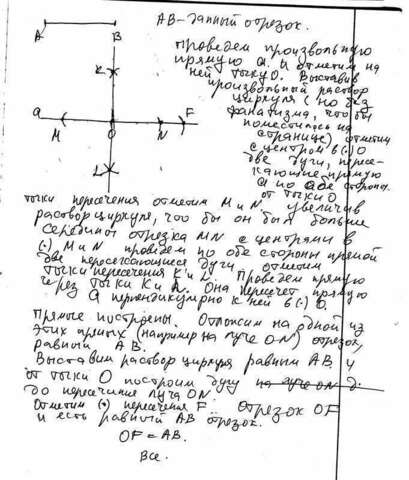 A B
AB - данный отрезок.
Проведем произвольную
прямую a. И отметим на
ней точку O. Выставив
произвольный раствор
циркуля (но без
фанатизма, что бы
поместилось на
странице) отметим
с центром в (.) O
две дуги, пересе-
кающие прямую
a по обе стороны
от точки O
K
a M O N F
L
точки пересечения отметим M и N. увеличив
раствор циркуля, что бы он был больше
середины отрезка MN с центрами в
(.) M и N проведем по обе стороны прямой
две пересекающиеся дуги отметим
точки пересечения K и L. Проведем прямую
через точки K и L. Она пересечет прямую
a перпендикулярно к ней в (.) O.
Прямые построены. Отложим на одной из
этих прямых (например на луче ON) отрезок,
равный AB.
Выставим раствор циркуля равным AB и
от точки O построим дугу на луче ON д.
до пересечения луча ON.
Отметим (.) пересечения F. Отрезок OF
и есть равный AB отрезок.
OF = AB.
Все.